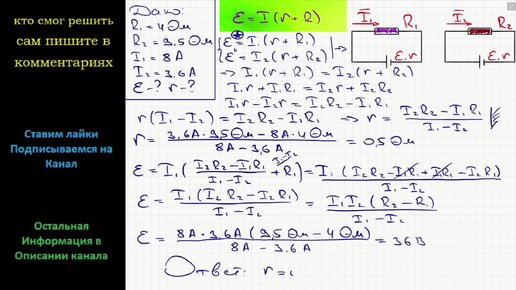 кто смог решить
сам пишите в
комментариях
Ставим лайки
Подписываемся на
Канал
Остальная
Информация в
Описании канала
Дано:
R₁ = 4 Ом
R₂ = 9,5 Ом
I₁ = 8 А
I₂ = 3,6 А
ε - ? r - ?
ε = I(r + R)
ε = I₁(r + R₁)
ε = I₂(r + R₂)
I₁ R₁
ε, r
I₂ R₂
ε, r
⇒ I₁(r + R₁) = I₂(r + R₂)
I₁r + I₁R₁ = I₂r + I₂R₂
I₁r - I₂r = I₂R₂ - I₁R₁
r(I₁ - I₂) = I₂R₂ - I₁R₁ ⇒ r = (I₂R₂ - I₁R₁) / (I₁ - I₂)
r = (3,6А · 9,5 Ом - 8А · 4 Ом) / (8А - 3,6А) = 0,5 Ом
ε = I₁((I₂R₂ - I₁R₁) / (I₁ - I₂) + R₁) = I₁(I₂R₂ - I₁R₁ + I₁R₁ - I₂R₁) / (I₁ - I₂)
ε = I₁(I₂R₂ - I₂R₁) / (I₁ - I₂) = I₁I₂(R₂ - R₁) / (I₁ - I₂)
ε = 8А · 3,6А (9,5 Ом - 4 Ом) / (8А - 3,6А) = 36 В
Ответ: r =